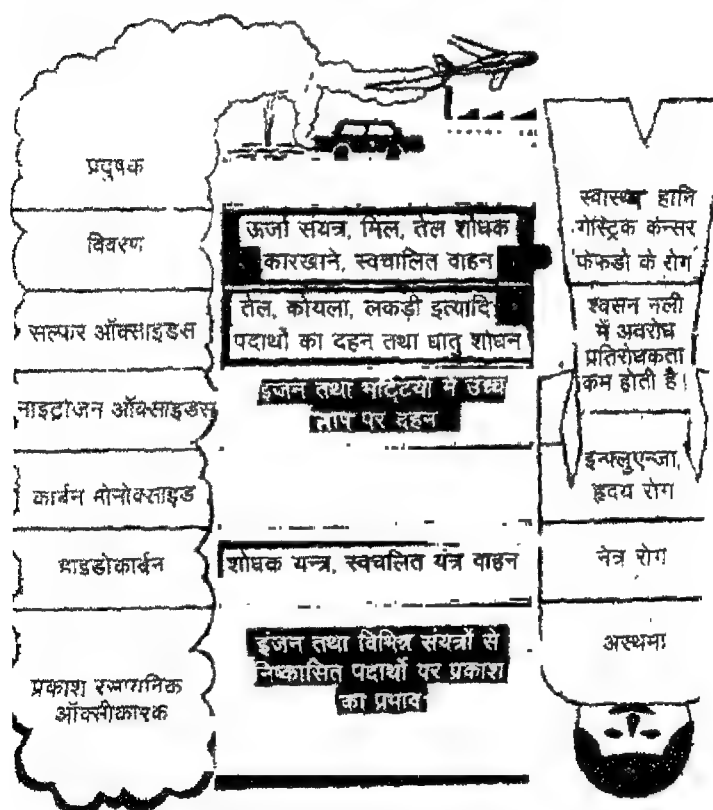 प्रदुषक
विवरण
सल्फर ऑक्साइडस
नाइट्रोजन ऑक्साइडस
कार्बन मोनोक्साइड
हाइड्रोकार्बन
प्रकाश रसायनिक
ऑक्सीकारक
ऊर्जा संयत्र, मिल, तेल शोधक
कारखाने, स्वचालित वाहन
तेल, कोयला, लकड़ी इत्यादि
पदार्थो का दहन तथा धातु शोधन
इंजन तथा भट्टियो में उच्च
ताप पर दहन
शोधक यन्त्र, स्वचलित यंत्र वाहन
इंजन तथा विभिन्न संयत्रों से
निष्कासित पदार्थो पर प्रकाश
का प्रभाव
स्वास्थ्य हानि
गेस्ट्रिक केन्सर
फेफडो के रोग
श्वसन नली
में अवरोध
प्रतिरोधकता
कम होती है।
इन्फ्लुएन्जा,
हृदय रोग
नेत्र रोग
अस्थमा